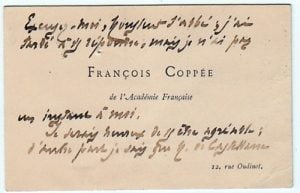 Excusez-moi, Monsieur l'abbé, si j'ai
tardé à répondre, mais je n'ai pas
FRANÇOIS COPPÉE
de l'Académie Française
un instant à moi.
Je serais heureux de être agréable;
d'autre part je sais que M. de
12, rue Oudinot.